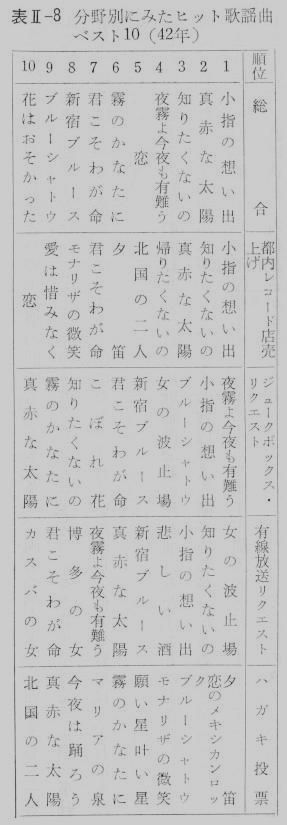 表Ⅱ-8 分野別にみたヒット歌謡曲
ベスト10（42年）
順位 総合 都内レコード店売上げ ジュークボックス・リクエスト 有線放送リクエスト ハガキ投票
1 小指の想い出 小指の想い出 夜霧よ今夜も有難う 女の波止場 夕笛
2 真赤な太陽 知りたくないの 小指の想い出 知りたくないの 恋のメキシカンロック
3 知りたくないの 真赤な太陽 ブルーシャトウ 小指の想い出 ブルーシャトウ
4 夜霧よ今夜も有難う 帰りたくないの 女の波止場 悲しい酒 モナリザの微笑
5 恋 北国の二人 新宿ブルース 新宿ブルース 願い星叶い星
6 霧のかなたに 夕笛 君こそわが命 真赤な太陽 霧のかなたに
7 君こそわが命 君こそわが命 こぼれ花 夜霧よ今夜も有難う マリアの泉
8 新宿ブルース モナリザの微笑 知りたくないの 博多の女 今夜は踊ろう
9 ブルーシャトウ 愛は惜みなく 霧のかなたに 君こそわが命 真赤な太陽
10 花はおそかった 恋 真赤な太陽 カスバの女 北国の二人